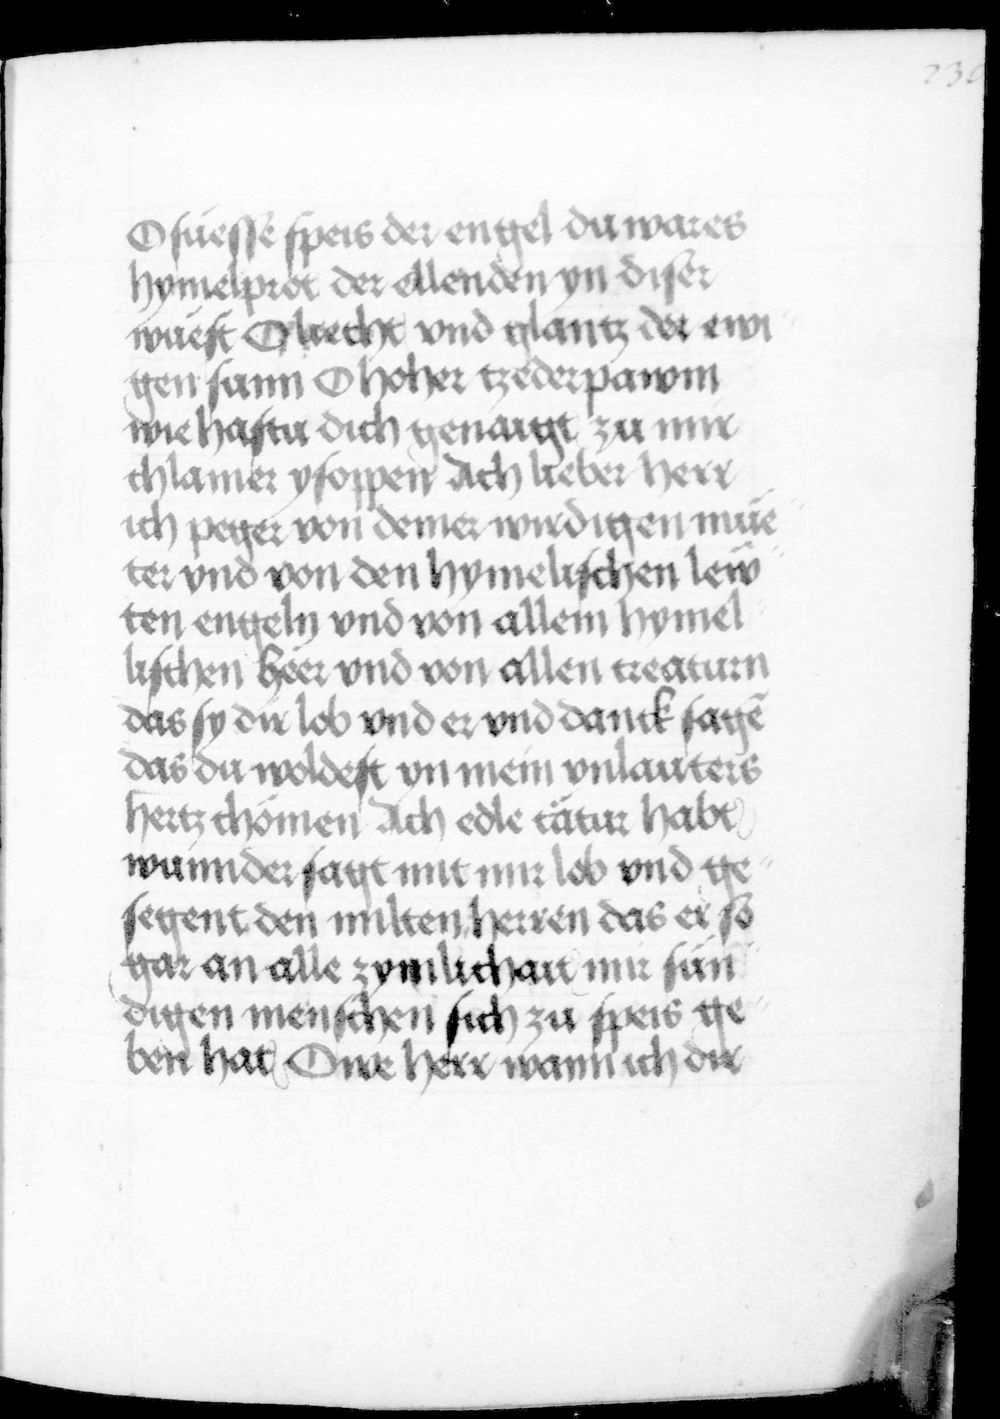 230
O süesse speis der engel du wares
hymelprot der ellenden yn diser
wüest O liecht vnd glantz der ewi
gen sunn O hoher tzederpawm
wie hastu dich genaigt zu mir
chlainer ysoppen Ach lieber herr
ich peger von deiner wirdigen müe
ter vnd von den hymelischen lew
ten engeln vnd von allem hymel
lischen heer vnd von allen creaturn
das sy dir lob vnd er vnd danck sagē
das du woldest yn mein vnlauters
hertz chömen Ach edle cätur habt
wunnder sagt mit mir lob vnd ge
segent den milten herren das er so
gar an alle zymlichait mir sün
digen menschen sich zu speis ge
ben hat Owe herr wann ich dir